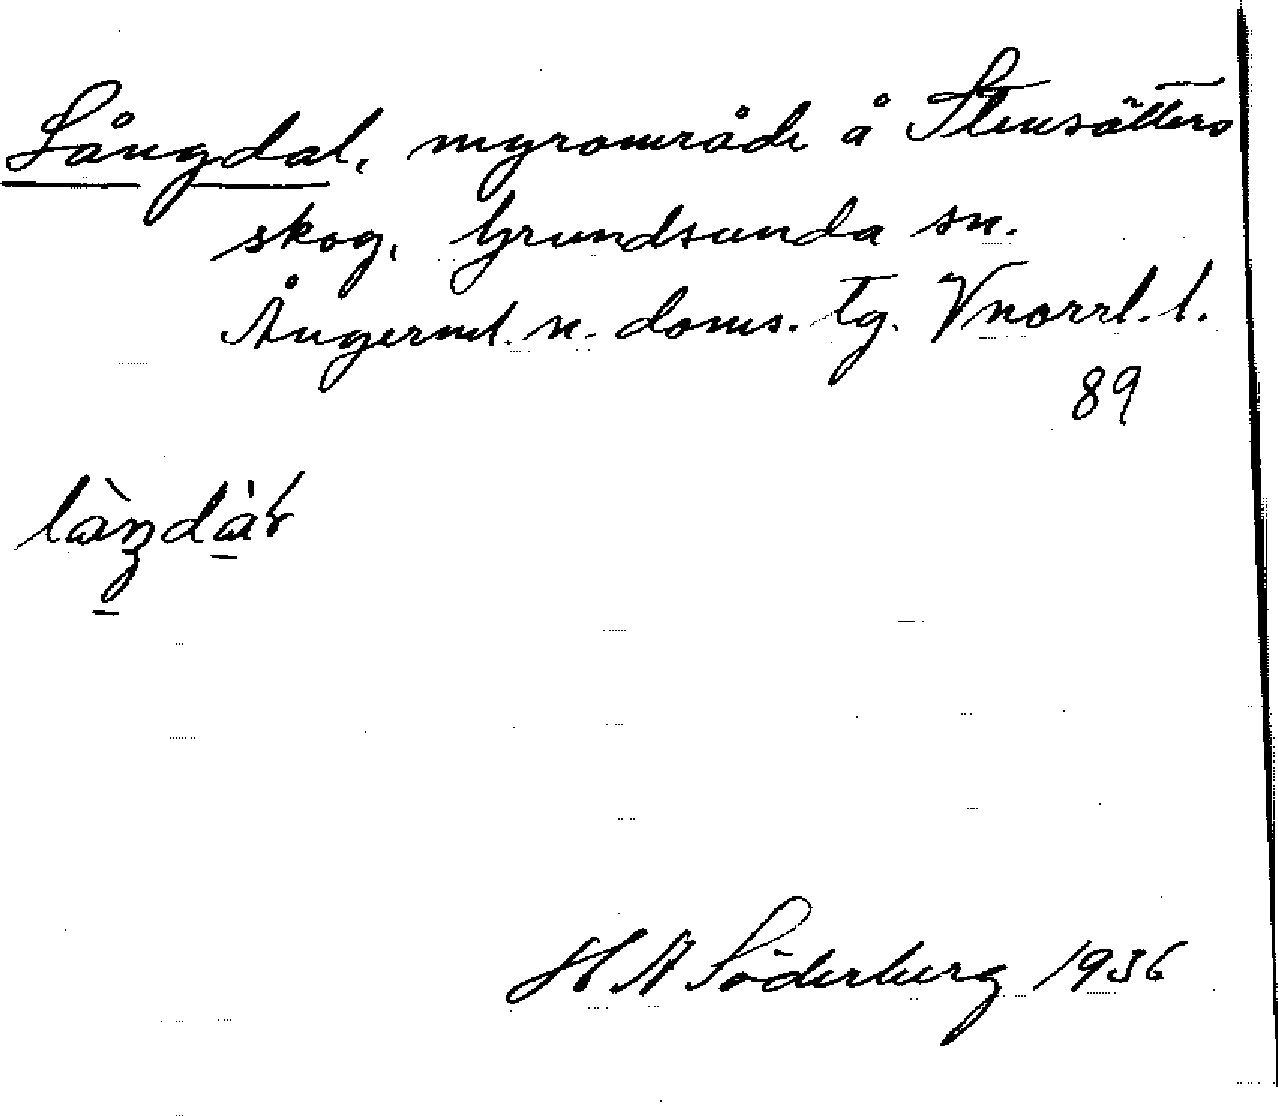 Långdal, myrområde å Stensätters
skog, Grundsunda sn.
Ångerml. n. doms. tg. Vnorrl. l.
89
H A Söderberg 1936